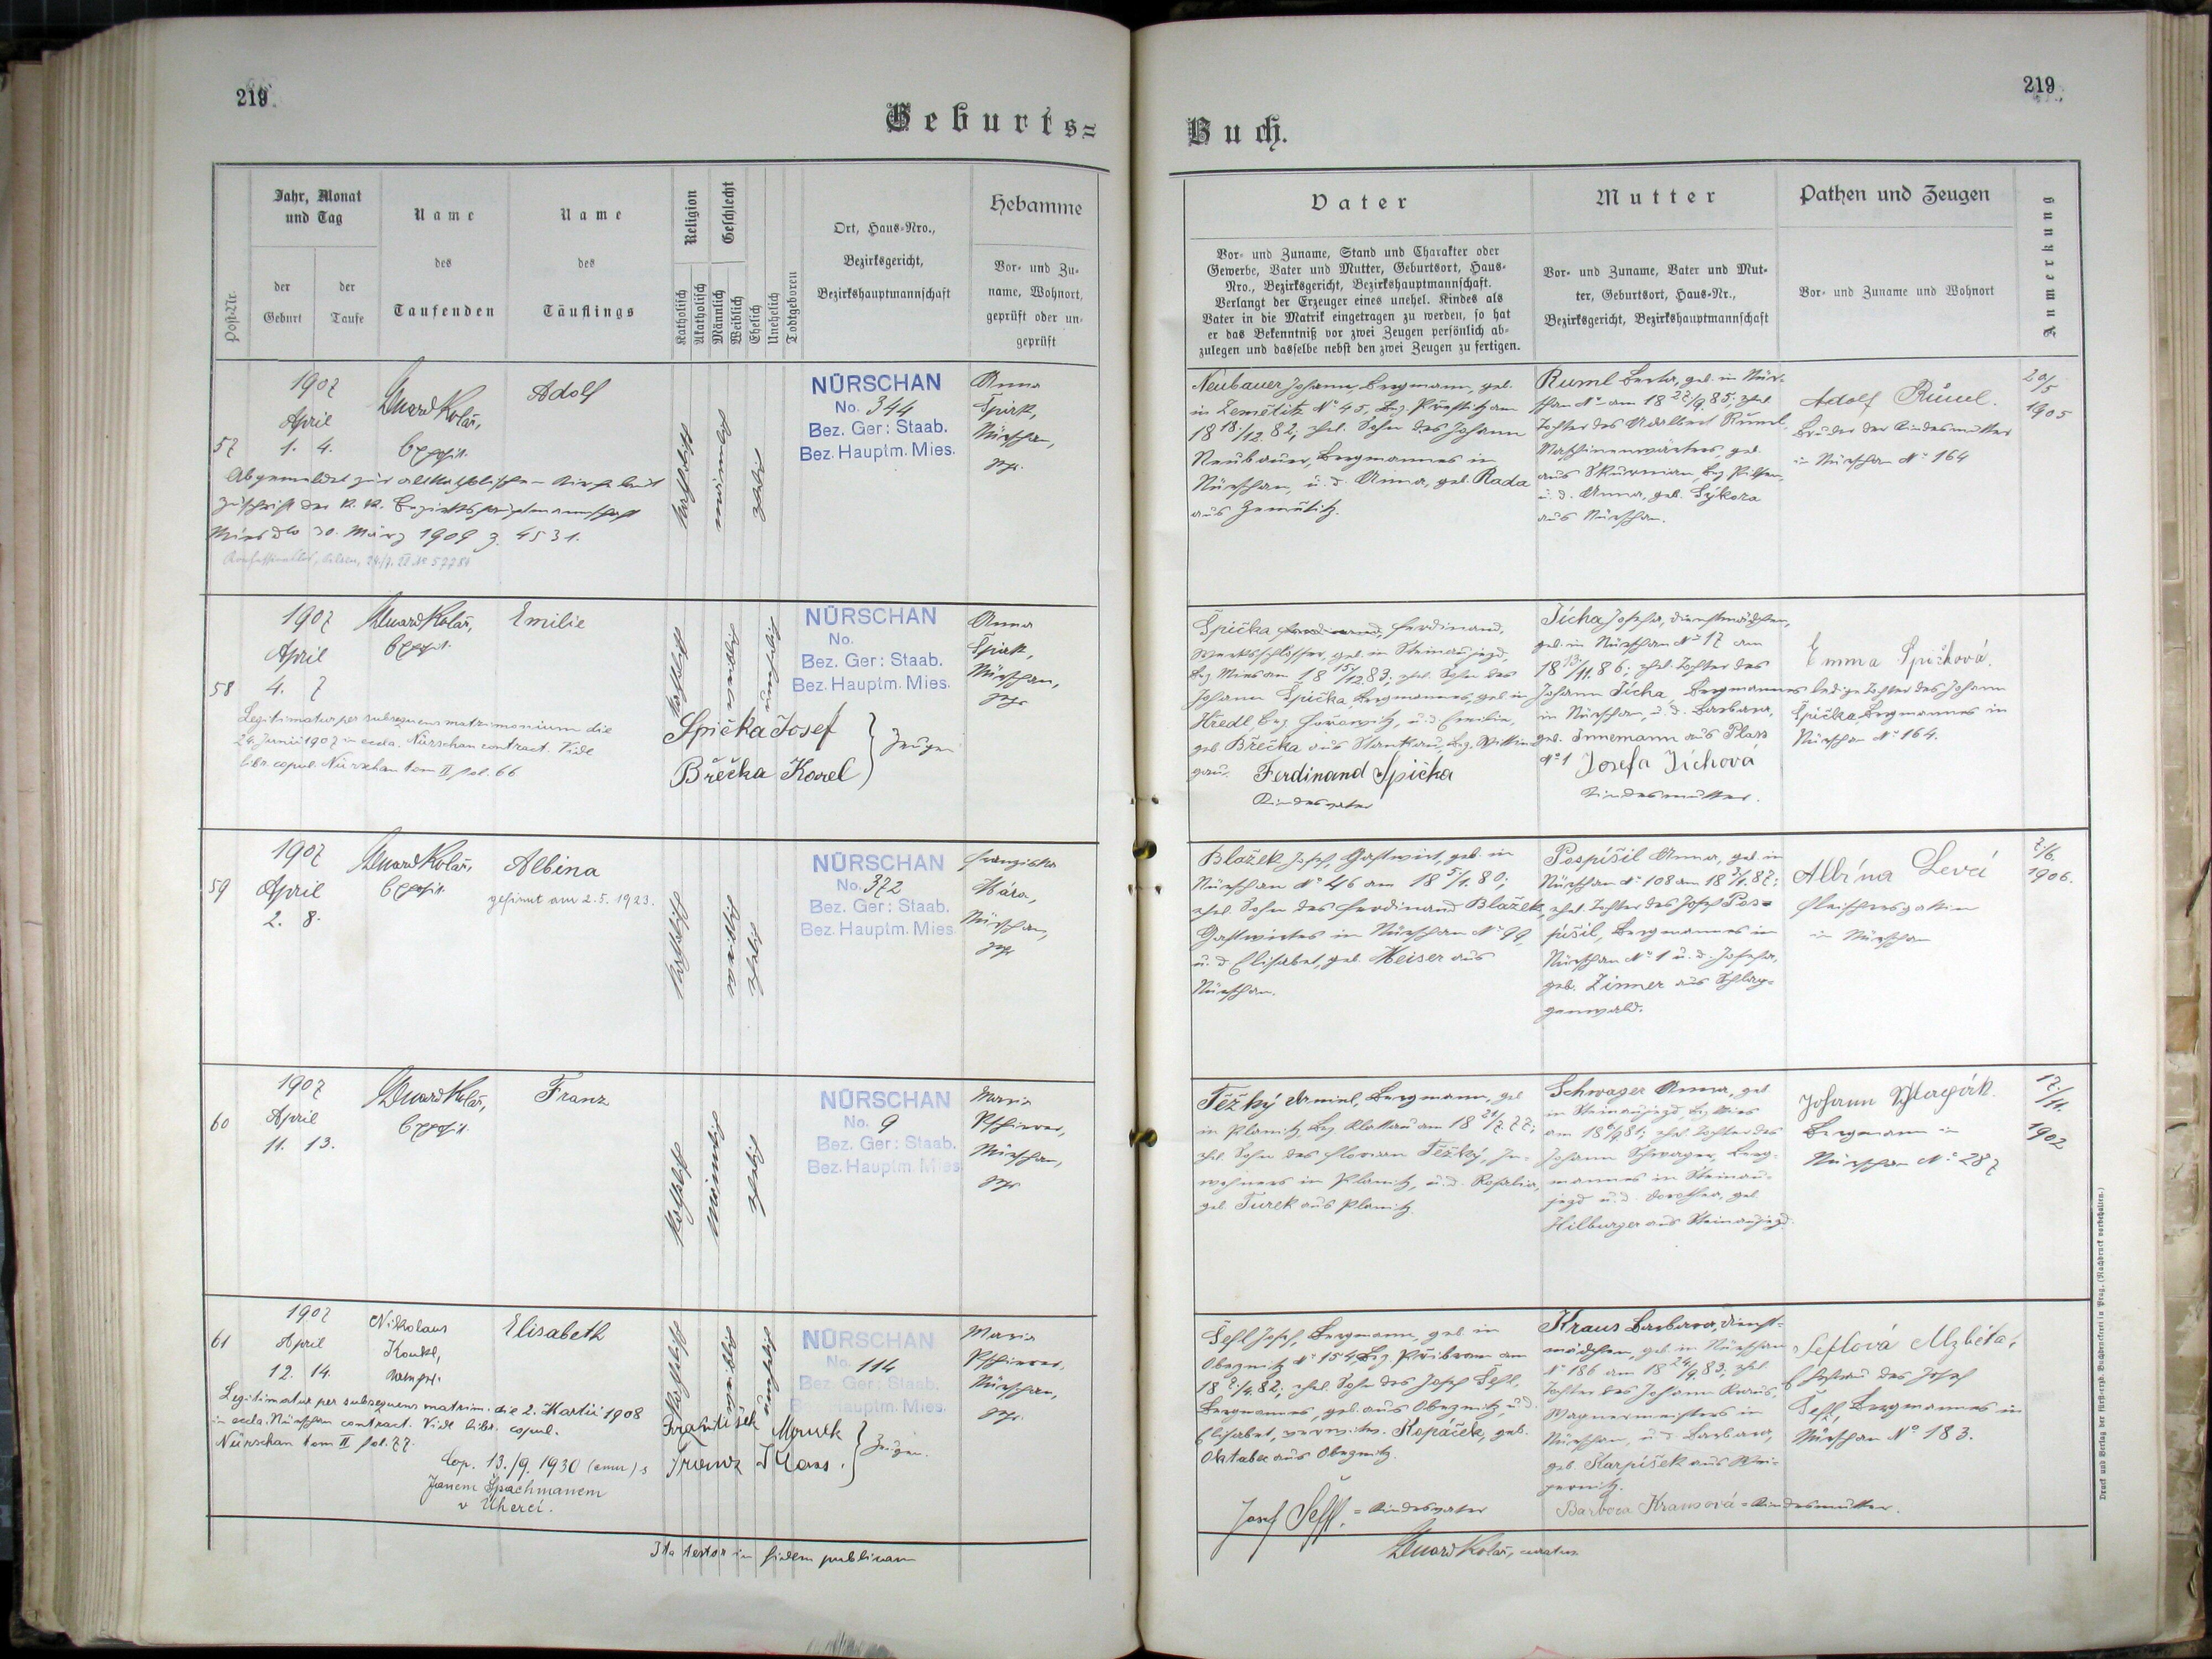 219
219
Geburts=
Buch.
Post-Nr.
Jahr, Monat
und Tag
der
Geburt
der
Taufe
Name
des
Taufenden
Name
des
Täuflings
Religion
Katholisch
Akatholisch
Geschlecht
Männlich
Weiblich
Ehelich
Unehelich
Todtgeboren
Ort, Haus=Nro.,
Bezirksgericht,
Bezirkshauptmannschaft
Hebamme
Vor= und Zu=
name, Wohnort,
geprüft oder un=
geprüft
Vater
Vor= und Zuname, Stand und Charakter oder
Gewerbe, Vater und Mutter, Geburtsort, Haus=
Nro., Bezirksgericht, Bezirkshauptmannschaft.
Verlangt der Erzeuger eines unehel. Kindes als
Vater in die Matrik eingetragen zu werden, so hat
er das Bekenntniß vor zwei Zeugen persönlich ab=
zulegen und dasselbe nebst den zwei Zeugen zu fertigen.
Mutter
Vor= und Zuname, Vater und Mut=
ter, Geburtsort, Haus=Nr.,
Bezirksgericht, Bezirkshauptmannschaft
Pathen und Zeugen
Vor= und Zuname und Wohnort
Anmerkung
57
1907
April
1. 4.
Eduard Kolář,
Adolf
katholisch
männlich
ehelich
NÜRSCHAN
No. 344
Bez. Ger: Staab.
Bez. Hauptm. Mies.
Anna
Špirk,
Nürschan,
gepr.
Abgemeldet zur altkatholischen Kirche laut
Zuschrift der k. k. Bezirkshauptmannschaft
Mies dto 30. März 1909 Z. 4531.
Neubauer Johann, Bergmann, geb.
in Zemětitz No 45, Bez. Přestitz am
18 18./12. 82; ehel. Sohn des Johann
Neubauer, Bergmannes in
Nürschan, u. d. Anna, geb. Rada
aus Zemětitz.
Ruml Berta, geb. in Nür=
schan No am 18 22/9. 85; ehel.
Tochter des Adalbert Ruml,
Maschinenwärters, geb.
aus Skurnian, Bez. Pilsen,
u. d. Anna, geb. Sýkora
aus Nürschan.
Adolf Ruml.
Bruder der Kindesmutter
in Nürschan No 164
20/5
1905
58
1907
April
4. 7
Eduard Kolář,
Emilie
katholisch
weiblich
unehelich
NÜRSCHAN
No.
Bez. Ger: Staab.
Bez. Hauptm. Mies.
Anna
Špirk,
Nürschan,
gepr.
Legitimatur per subsequens matrimonium die
24. Junii 1907 in eccla. Nürschan contract. Vide
libr. copul. Nürschan tom II fol. 66
Spička Josef
Břečka Karel
} Zeugen
Špička Ferdinand,
Werksschlosser, geb. in Steinaujezd,
Bez Mies am 18 15/12. 83; ehel. Sohn des
Johann Špička, Bergmannes, geb. in
Hředl Bez Hořowitz, u. d. Emilie,
geb. Břečka aus Stankau, Bez.
Ferdinand Spička
Kindesvater
Jícha Josefa, Dienstmädchen,
geb. in Nürschan No 17 am
18 13./11. 86; ehel. Tochter des
Johann Jícha, Bergmannes
in Nürschan, u. d. Barbara,
geb. Innemann aus Plass
No 1
Josefa Jíchová
Kindesmutter.
Emma Špičková.
ledige Tochter des Johann
Špička Bergmannes in
Nürschan No 164.
59
1907
April
2. 8.
Eduard Kolář,
Albina
gefirmt am 2.5.1923.
katholisch
weiblich
ehelich
NÜRSCHAN
No. 372
Bez. Ger: Staab.
Bez. Hauptm. Mies
Franziska
Nürschan,
gepr.
Blažek Josef, Gastwirt, geb. in
Nürschan No 46 am 18 5/1. 80;
ehel. Sohn des Ferdinand Blažek,
Gastwirtes in Nürschan No 99,
u. d. Elisabet, geb. Meiser aus
Nürschan.
Pospíšil Anna, geb. in
Nürschan No 108 am 18 3/1. 87;
ehel. Tochter des Josef Pos=
píšil, Bergmannes in
Nürschan No 1 u. d. Josefa,
geb. Zinner aus Schlag=
genwald.
Albína Levčí
Fleischersgattin
in Nürschan
7/6.
1906.
60
1907
April
11. 13.
Eduard Kolář,
Franz
katholisch
männlich
ehelich
NÜRSCHAN
No. 9
Bez. Ger: Staab.
Bez. Hauptm. Mies
Maria
Nürschan,
gepr.
Těžký Bergmann, geb
in Planitz, Bez Klattau am 18 21/7. 77;
ehel. Sohn des Florian Těžký, In=
wohners in Planitz, u. d. Rosalia,
geb. Turek aus Planitz.
Schwager Anna, geb
in Steinaujezd, Bez Mies
am 18 6/9 81; ehel. Tochter des
Johann Schwager, Berg=
mannes in Steinau=
jezd u. d. Dorothea, geb
Hilburger aus Steinaujezd.
Johann
Bergmann in
Nürschan No 287
17./11.
1902
61
1907
April
12. 14.
Nikolaus
Elisabeth
katholisch
weiblich
unehelich
NÜRSCHAN
No. 114
Bez. Ger: Staab.
Bez. Hauptm. Mies.
Maria
Nürschan,
gepr.
Legitimatur per subsequens matrim. die 2. Martii 1908
in eccla. Nürschan contract. Vide libr. copul.
Nürschan tom II fol. 77.
Cop. 13./9. 1930 s
Janem Špachmanem
v Úherci.
František
Franz
} Zeugen.
Šefl Josef, Bergmann, geb in
Obeznitz No 154, Bez Přibram am
18 7/4. 82; ehel. Sohn des Josef Šefl,
Bergmannes, geb. aus Obeznitz, u. d.
Elisabet, verwitw. Kopáček, geb.
Oktabec aus Obeznitz.
Josef Šeffl. = Kindesvater
Kraus Barbara, Dienst=
mädchen, geb. in Nürschan
No 186 am 18 24/9. 83, ehel.
Tochter des Johann Kraus,
Wagnermeisters in
Nürschan, u. d. Barbara,
geb. Karpíšek aus
Barbora Krausová = Kindesmutter.
Šeflová Alžběta,
Ehefrau des Josef
Šefl, Bergmannes in
Nürschan No 183.
Ita testor in fidem publicam
Eduard Kolář, curatus.
Druck und Verlag der fürst=erzb. Buchdruckerei in Prag. (Nachdruck vorbehalten.)